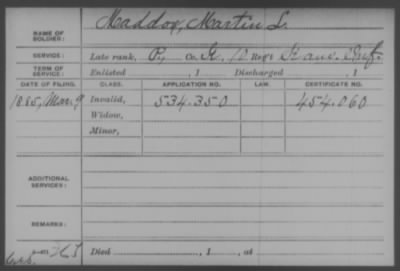 NAME OF SOLDIER: Maddox, Martin L.
SERVICE: Late rank, P, Co. K, 10 Reg't Kans. Inf.
TERM OF SERVICE: Enlisted , 1 Discharged , 1
DATE OF FILING. CLASS. APPLICATION NO. LAW. CERTIFICATE NO.
1885, Mar. 9 Invalid, 534.350 454.060
Widow,
Minor,
ADDITIONAL SERVICES:
REMARKS:
Died , 1 , at